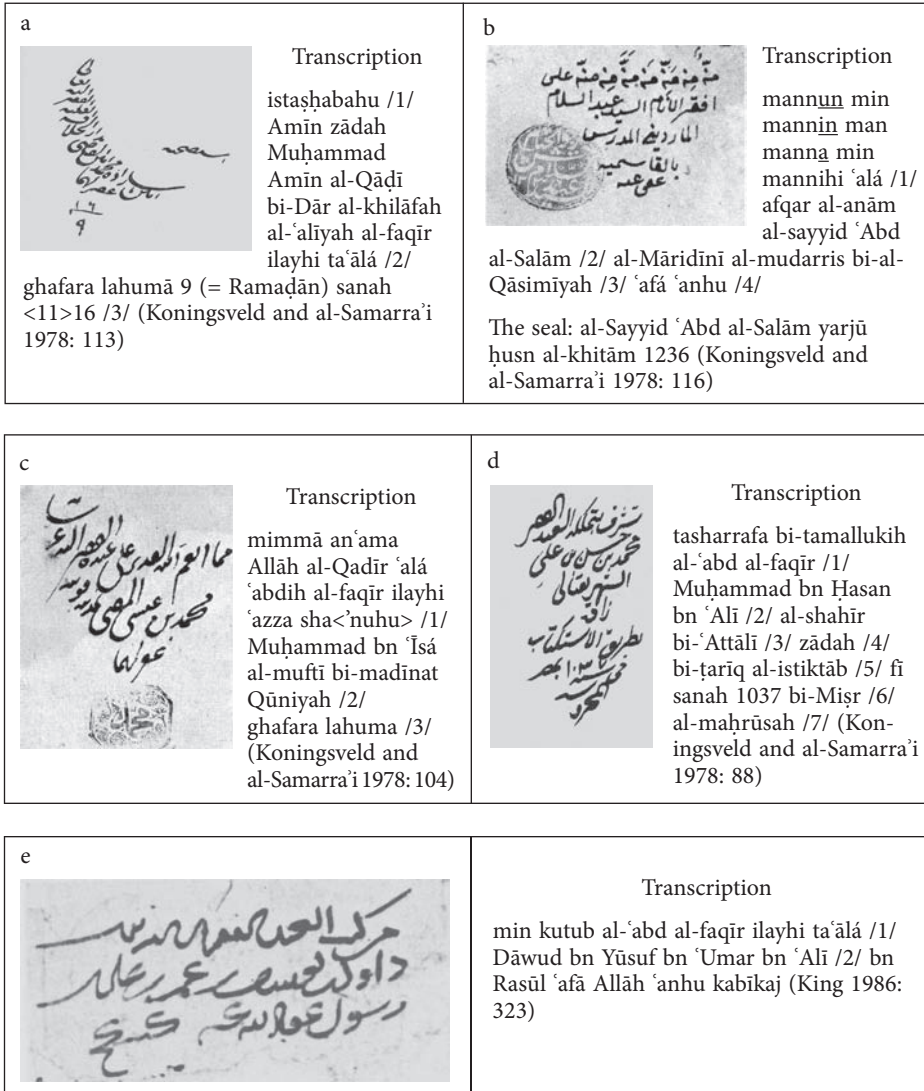 a
Transcription
istaṣḥabahu /1/
Amīn zādah
Muḥammad
Amīn al-Qāḍī
bi-Dār al-khilāfah
al-ʿalīyah al-faqīr
ilayhi taʿālá /2/
ghafara lahumā 9 (= Ramaḍān) sanah
<11>16 /3/ (Koningsveld and al-Samarraʾi
1978: 113)
١٦
٩
b
افقر الأنام السيد عبد السلام
الماردينى المدرس
بالقاسميه
عفى عنه
Transcription
mannun min
mannin man
manna min
mannihi ʿalá /1/
afqar al-anām
al-sayyid ʿAbd
al-Salām /2/ al-Māridīnī al-mudarris bi-al-
Qāsimīyah /3/ ʿafá ʿanhu /4/
The seal: al-Sayyid ʿAbd al-Salām yarjū
ḥusn al-khitām 1236 (Koningsveld and
al-Samarraʾi 1978: 116)
c
Transcription
mimmā anʿama
Allāh al-Qadīr ʿalá
ʿabdih al-faqīr ilayhi
ʿazza sha<ʾnuhu> /1/
Muḥammad bn ʿĪsá
al-muftī bi-madīnat
Qūniyah /2/
ghafara lahuma /3/
(Koningsveld and
al-Samarraʾi 1978: 104)
d
تشرف بتملكه العبد الفقير
محمد بن حسن بن على
بطريق الاستكتاب
Transcription
tasharrafa bi-tamallukih
al-ʿabd al-faqīr /1/
Muḥammad bn Ḥasan
bn ʿAlī /2/ al-shahīr
bi-ʿAttālī /3/ zādah /4/
bi-ṭarīq al-istiktāb /5/ fī
sanah 1037 bi-Miṣr /6/
al-maḥrūsah /7/ (Kon-
ingsveld and al-Samarraʾi
1978: 88)
e
Transcription
min kutub al-ʿabd al-faqīr ilayhi taʿālá /1/
Dāwud bn Yūsuf bn ʿUmar bn ʿAlī /2/ bn
Rasūl ʿafā Allāh ʿanhu kabīkaj (King 1986:
323)